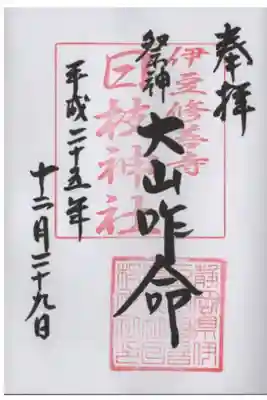 奉拝
伊豆修善寺
日枝神社
祭神
大山咋命
平成二十五年
十二月二十九日